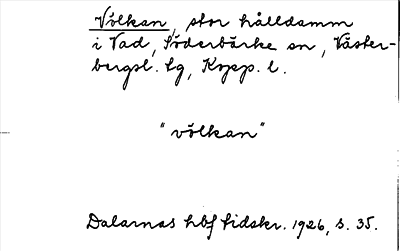 Völkan, stor hålldamm
i Vad, Söderbärke sn, Väster-
bergsl. lg, Kopp. l.
"völkan"
Dalarnas hbf tidskr. 1926, s. 35.